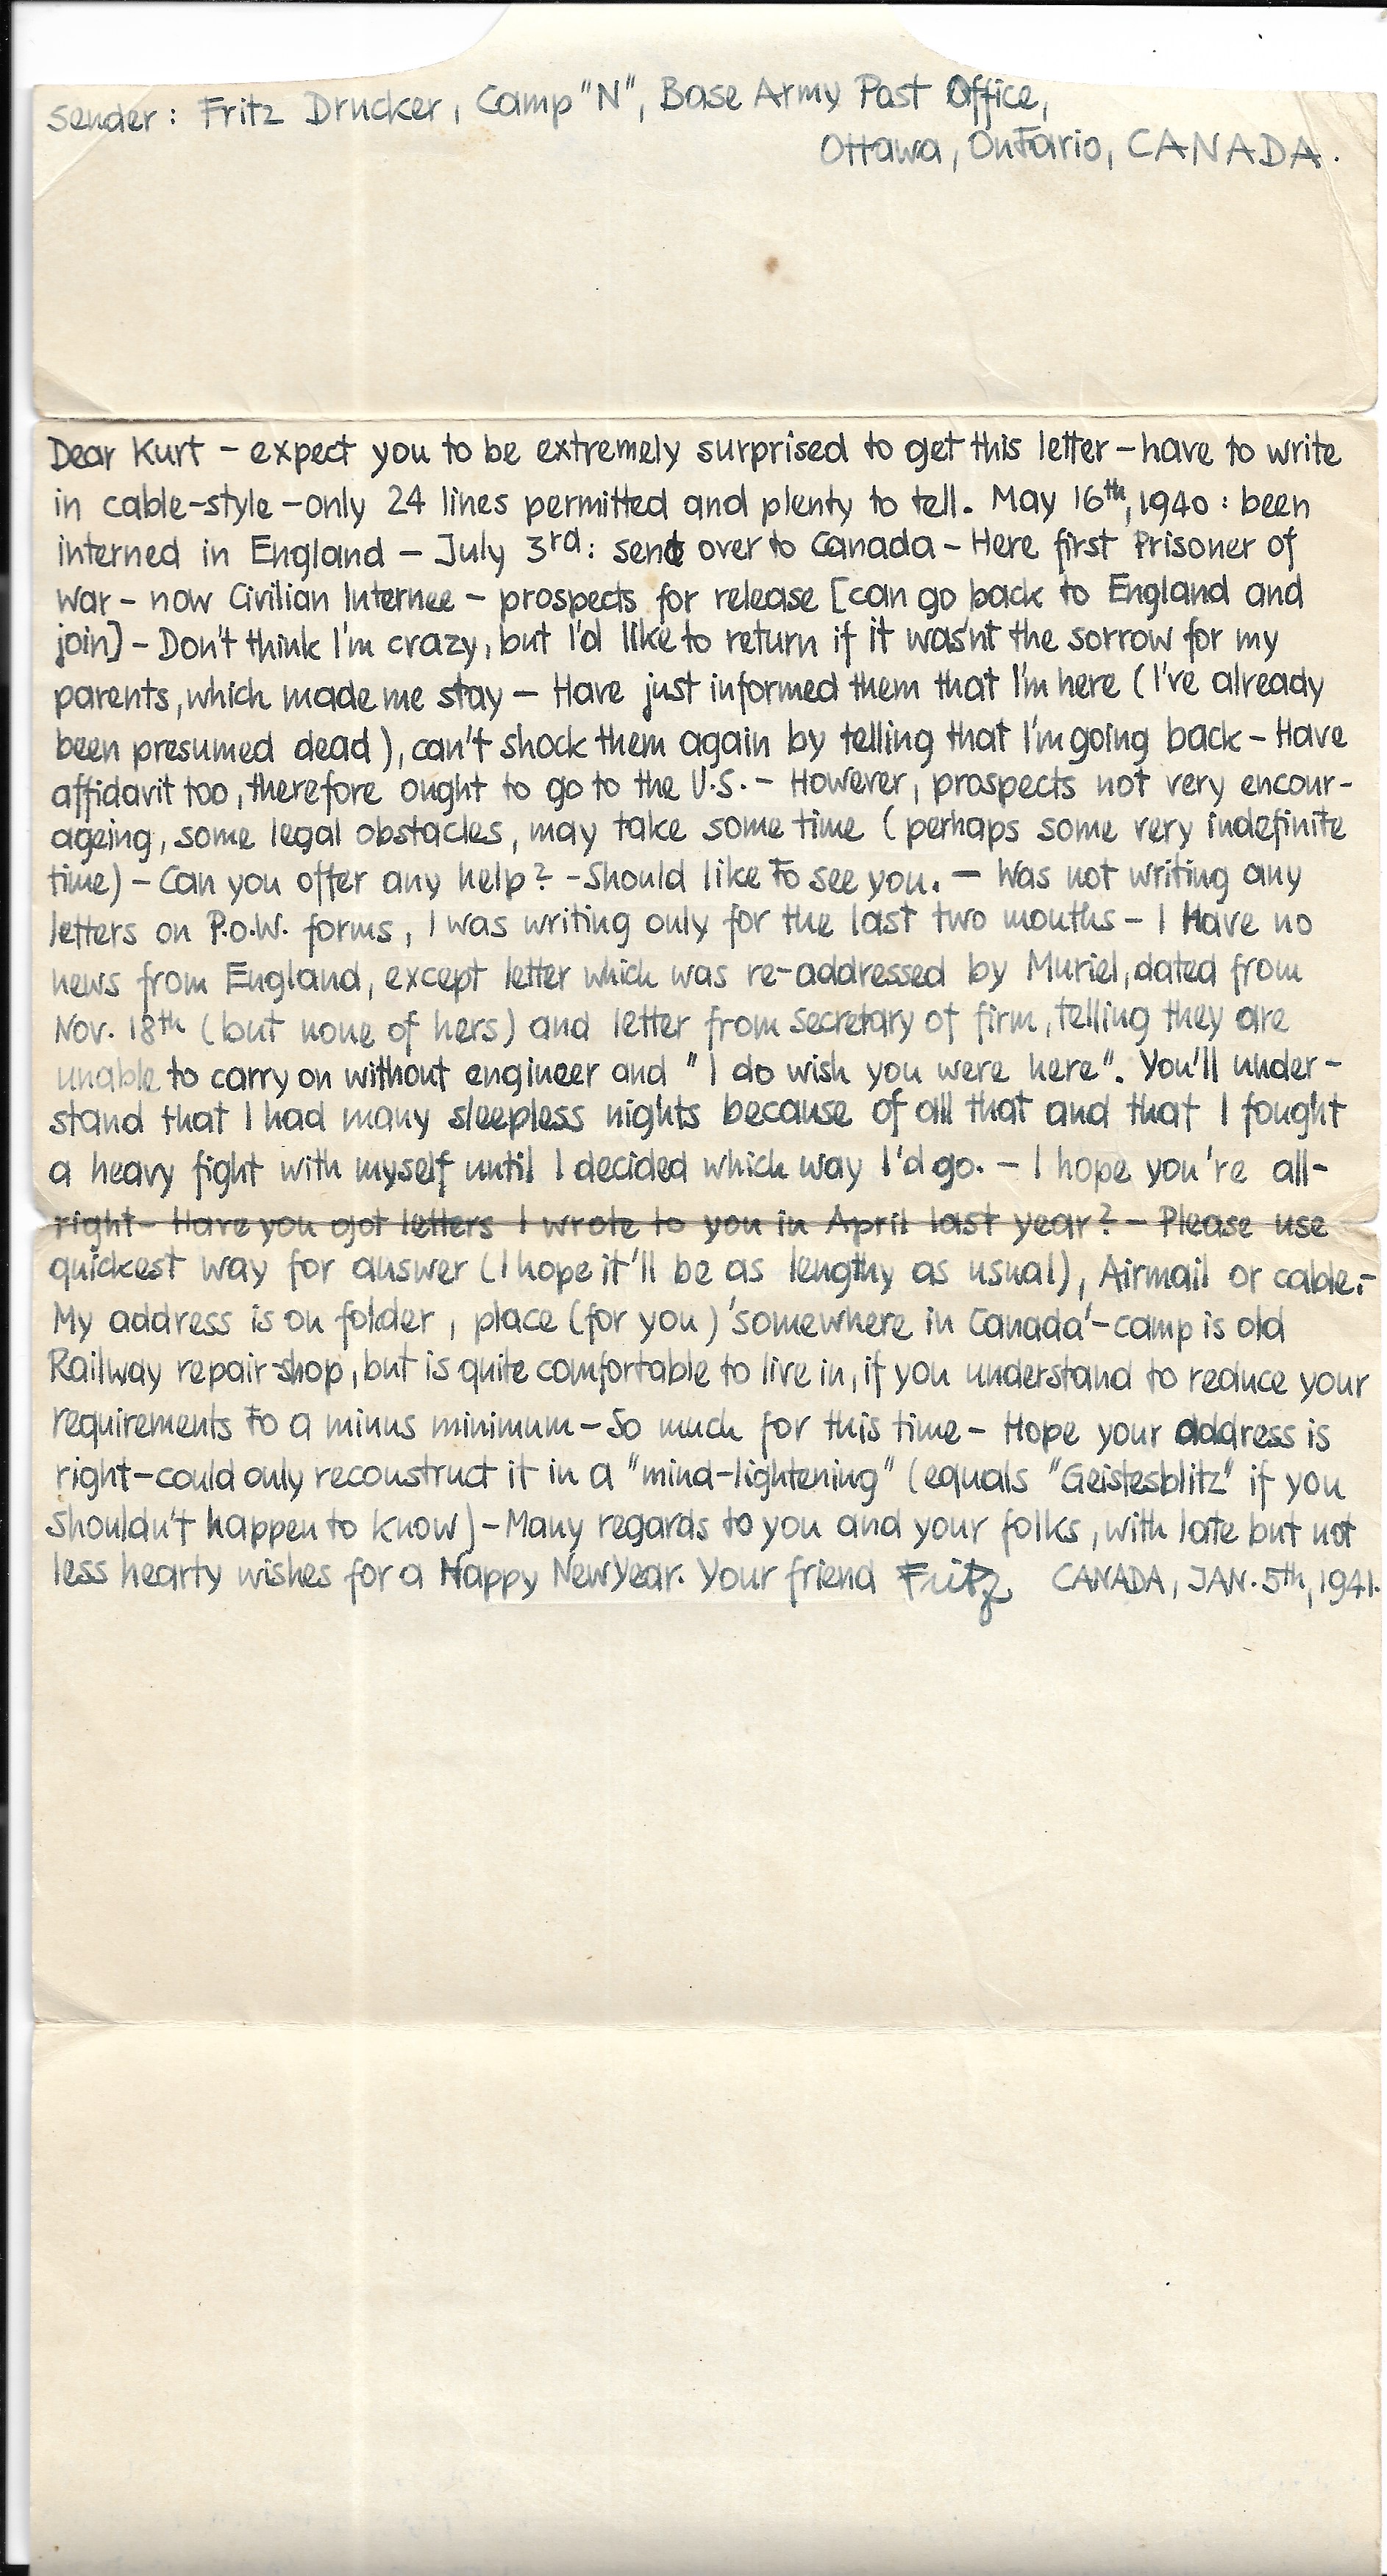 Sender: Fritz Drucker, Camp "N", Base Army Post Office,
Ottawa, Ontario, CANADA.
Dear Kurt - expect you to be extremely surprised to get this letter - have to write
in cable-style - only 24 lines permitted and plenty to tell. May 16th, 1940: been
interned in England - July 3rd: sent over to Canada - Here first Prisoner of
War - now Civilian Internee - prospects for release [can go back to England and
join] - Don't think I'm crazy, but I'd like to return if it was'nt the sorrow for my
parents, which made me stay - Have just informed them that I'm here (I've already
been presumed dead), can't shock them again by telling that I'm going back - Have
affidavit too, therefore ought to go to the U.S. - However, prospects not very encour-
ageing, some legal obstacles, may take some time (perhaps some very indefinite
time) - Can you offer any help? - Should like to see you. - Was not writing any
letters on P.o.W. forms, I was writing only for the last two months - I Have no
news from England, except letter which was re-addressed by Muriel, dated from
Nov. 18th (but none of hers) and letter from secretary of firm, telling they are
unable to carry on without engineer and "I do wish you were here". You'll under-
stand that I had many sleepless nights because of all that and that I fought
a heavy fight with myself until I decided which way I'd go. - I hope you're all-
right - Have you got letters I wrote to you in April last year? - Please use
quickest way for answer (I hope it'll be as lengthy as usual), Airmail or cable.-
My address is on folder, place (for you) 'somewhere in Canada' - camp is old
Railway repair-shop, but is quite comfortable to live in, if you understand to reduce your
requirements to a minus minimum - So much for this time - Hope your address is
right - could only reconstruct it in a "mind-lightening" (equals "Geistesblitz" if you
shouldn't happen to know) - Many regards to you and your folks, with late but not
less hearty wishes for a Happy New Year. Your friend Fritz CANADA, JAN. 5th, 1941.